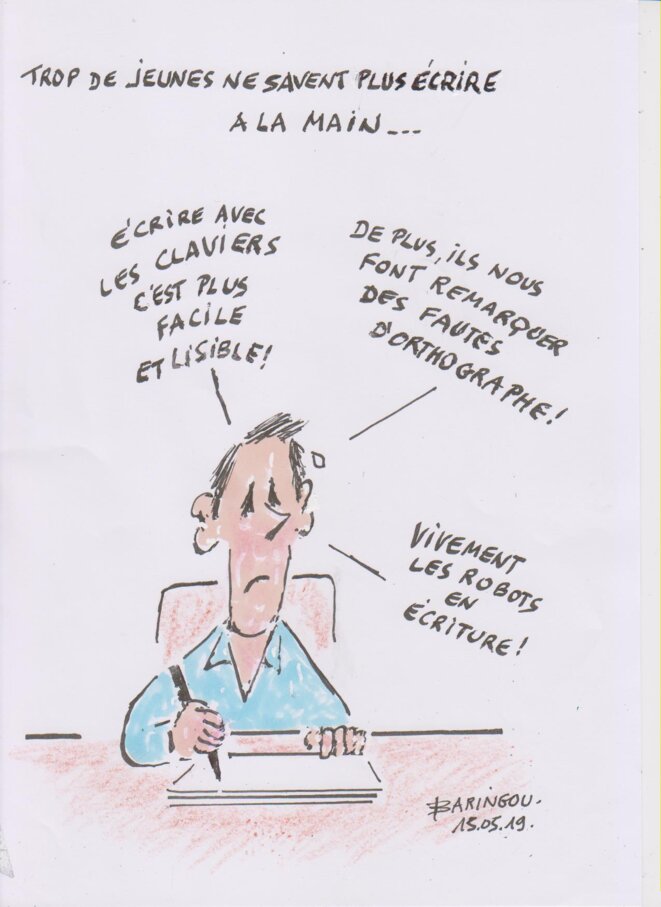 TROP DE JEUNES NE SAVENT PLUS ÉCRIRE
A LA MAIN...
ÉCRIRE AVEC
LES CLAVIERS
C'EST PLUS
FACILE
ET LISIBLE!
DE PLUS, ILS NOUS
FONT REMARQUER
DES FAUTES
D'ORTHOGRAPHE!
VIVEMENT
LES ROBOTS
EN
ÉCRITURE!
BARINGOU.
15.05.19.